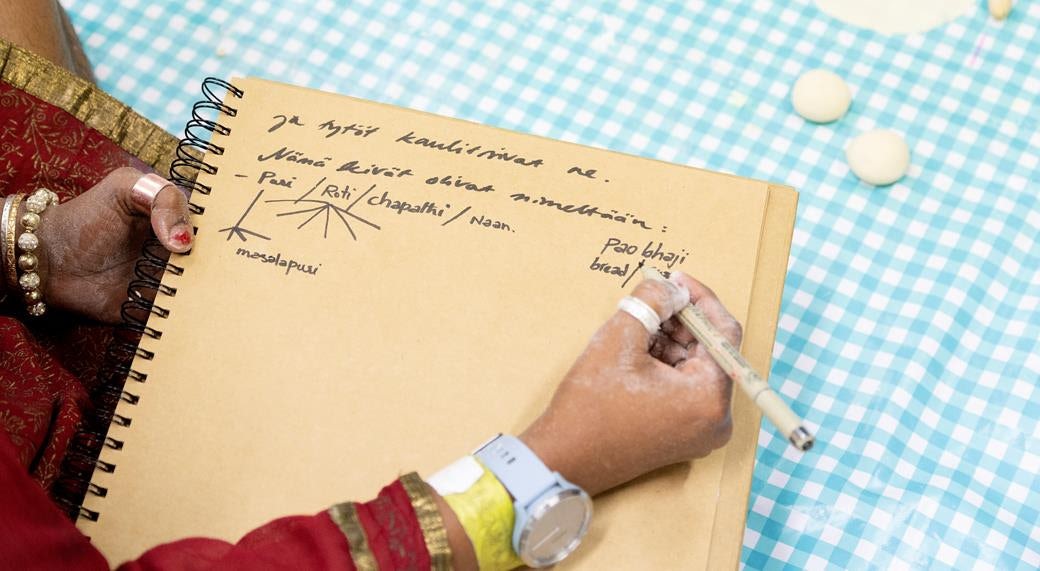 ja tytöt kaulitsivat ne.
Nämä leivät olivat nimeltään :
- Puri / Roti / chapathi / Naan.
masalapuri
Pao bhaji
bread /